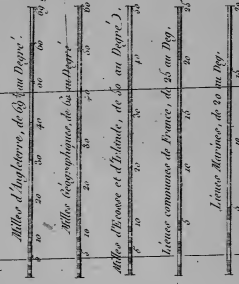 Milles d'Angleterre, de 69 ½ au Degré.
10 20 30 40 50 60 69 ½
Milles Géographiques, de 60 au Degré
10 20 30 40 50 60
Milles d'Ecosse et d'Irlande, de 50 au Degré.
5 10 20 30 40 50
Lieues communes de France, de 25 au Deg.
5 10 15 20 25
Lieues Marines, de 20 au Deg.
5 10 15